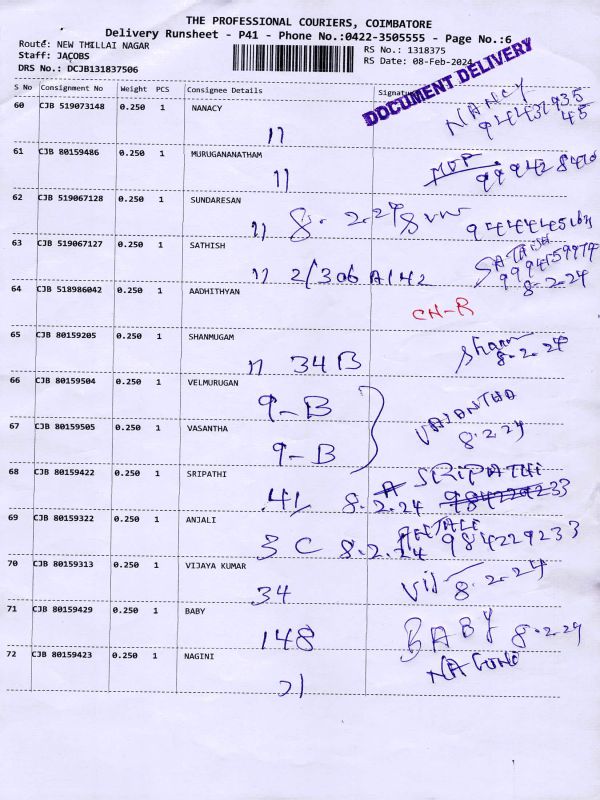 THE PROFESSIONAL COURIERS, COIMBATORE
Delivery Runsheet - P41 - Phone No.:0422-3505555 - Page No.:6
Route: NEW THILLAI NAGAR
Staff: JACOBS
DRS No.: DCJB131837506
RS No.: 1318375
RS Date: 08-Feb-2024
DOCUMENT DELIVERY
S No Consignment No Weight PCS Consignee Details Signature
60 CJB 519073148 0.250 1 NANACY
NANCY
11
61 CJB 80159486 0.250 1 MURUGANANATHAM
11
62 CJB 519067128 0.250 1 SUNDARESAN
11 8. 2.24
63 CJB 519067127 0.250 1 SATHISH
11 2/306 A142
8-2-24
64 CJB 518986042 0.250 1 AADHITHYAN
CH-R
65 CJB 80159205 0.250 1 SHANMUGAM
11 34B 8.2.24
66 CJB 80159504 0.250 1 VELMURUGAN
9-B
67 CJB 80159505 0.250 1 VASANTHA
8.2.24
9-B
68 CJB 80159422 0.250 1 SRIPATHI
A SRIPATHI
41 8.2.24 9842229233
69 CJB 80159322 0.250 1 ANJALI
3C 8.2.24 984229233
70 CJB 80159313 0.250 1 VIJAYA KUMAR
34 Vij 8.2.24
71 CJB 80159429 0.250 1 BABY
148 BABY 8.2.24
72 CJB 80159423 0.250 1 NAGINI
21